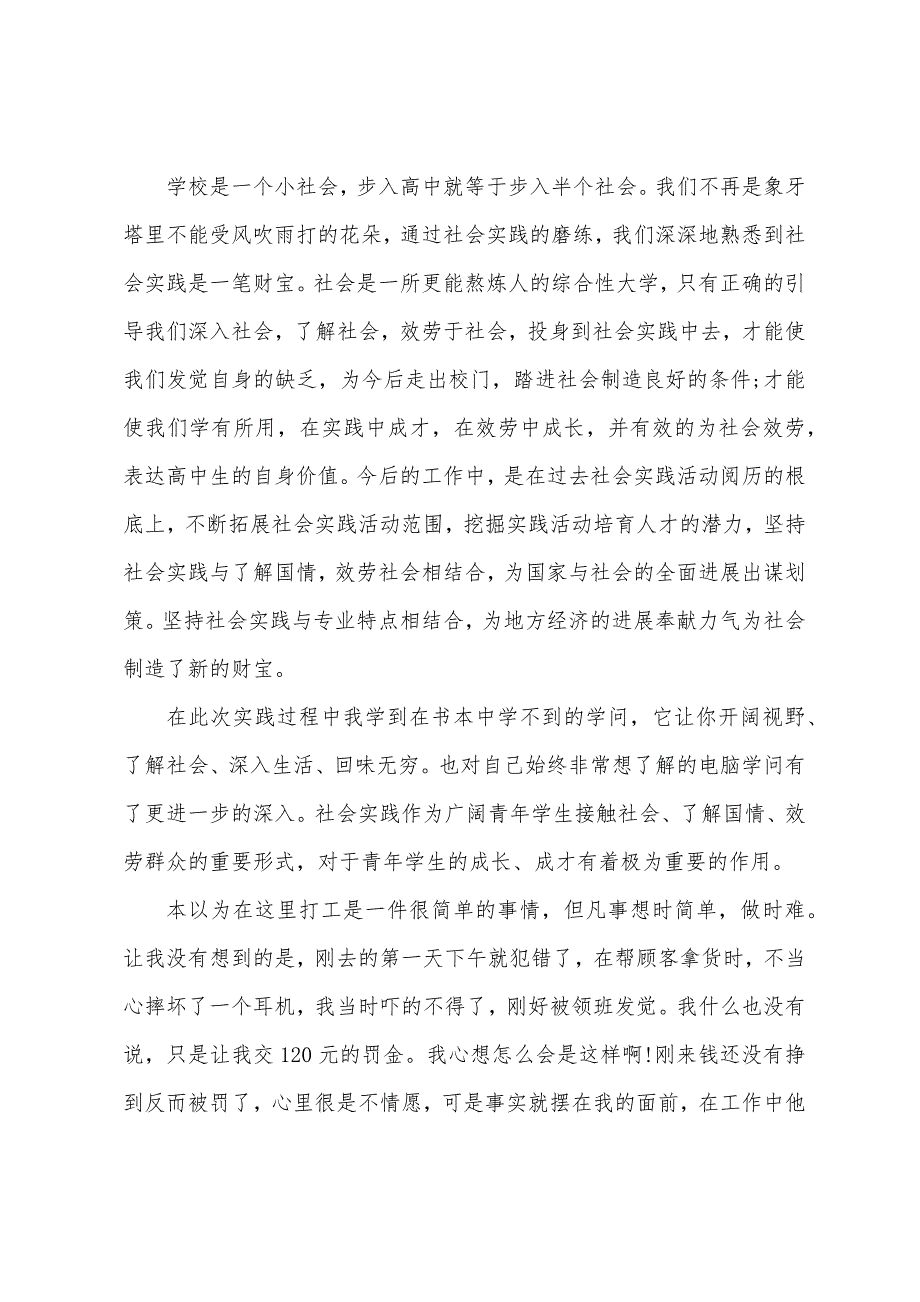 学校是一个小社会，步入高中就等于步入半个社会。我们不再是象牙
塔里不能受风吹雨打的花朵，通过社会实践的磨练，我们深深地熟悉到社
会实践是一笔财宝。社会是一所更能熬炼人的综合性大学，只有正确的引
导我们深入社会，了解社会，效劳于社会，投身到社会实践中去，才能使
我们发觉自身的缺乏，为今后走出校门，踏进社会制造良好的条件;才能
使我们学有所用，在实践中成才，在效劳中成长，并有效的为社会效劳，
表达高中生的自身价值。今后的工作中，是在过去社会实践活动阅历的根
底上，不断拓展社会实践活动范围，挖掘实践活动培育人才的潜力，坚持
社会实践与了解国情，效劳社会相结合，为国家与社会的全面进展出谋划
策。坚持社会实践与专业特点相结合，为地方经济的进展奉献力气为社会
制造了新的财宝。
在此次实践过程中我学到在书本中学不到的学问，它让你开阔视野、
了解社会、深入生活、回味无穷。也对自己始终非常想了解的电脑学问有
了更进一步的深入。社会实践作为广阔青年学生接触社会、了解国情、效
劳群众的重要形式，对于青年学生的成长、成才有着极为重要的作用。
本以为在这里打工是一件很简单的事情，但凡事想时简单，做时难。
让我没有想到的是，刚去的第一天下午就犯错了，在帮顾客拿货时，不当
心摔坏了一个耳机，我当时吓的不得了，刚好被领班发觉。我什么也没有
说，只是让我交 120 元的罚金。我心想怎么会是这样啊!刚来钱还没有挣
到反而被罚了，心里很是不情愿，可是事实就摆在我的面前，在工作中他